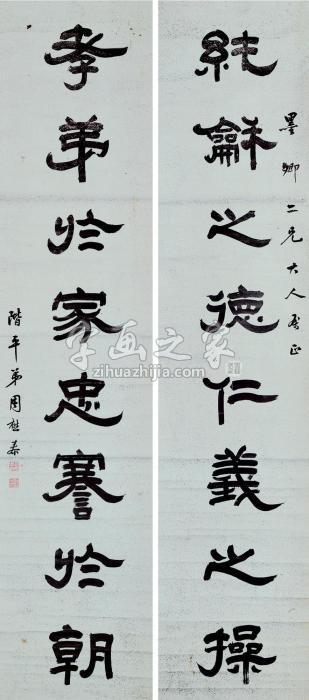 墨卿二兄大人属正
純龢之德仁義之操
孝弟於家忠謇於朝
階平弟周
字画之家
zihuazhijia.com